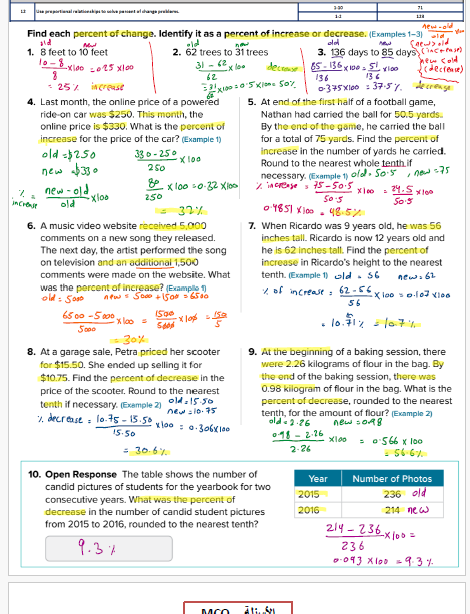 12 Use proportional relationships to solve percent of change problems. 1-10 71
1-2 123
Find each percent of change. Identify it as a percent of increase or decrease. (Examples 1–3)
new-old
old
old new
1. 8 feet to 10 feet
10-8
8
x100 = 0.25 x100
= 25% increase
old new
2. 62 trees to 31 trees
31-62
62
x100 decrease
= 31
62
x100 = 0.5 x100 = 50%
old new
3. 136 days to 85 days
new>old
(increase)
new<old
(decrease)
85-136
136
x100 = 51
136
x100
0.375x100 = 37.5% decrease
4. Last month, the online price of a powered
ride-on car was $250. This month, the
online price is $330. What is the percent of
increase for the price of the car? (Example 1)
old = $250
new = $330
330-250
250
x100
% increase = new-old
old
x100
80
250
x100 = 0.32 x100
= 32%
5. At end of the first half of a football game,
Nathan had carried the ball for 50.5 yards.
By the end of the game, he carried the ball
for a total of 75 yards. Find the percent of
increase in the number of yards he carried.
Round to the nearest whole tenth if
necessary. (Example 1) old = 50.5, new = 75
% increase = 75-50.5
50.5
x100 = 24.5
50.5
x100
0.4851 x100 = 48.5%
6. A music video website received 5,000
comments on a new song they released.
The next day, the artist performed the song
on television and an additional 1,500
comments were made on the website. What
was the percent of increase? (Example 1)
old = 5000 new = 5000 + 1500 = 6500
6500-5000
5000
x100 = 1500
5000
x100 = 150
5
= 30%
7. When Ricardo was 9 years old, he was 56
inches tall. Ricardo is now 12 years old and
he is 62 inches tall. Find the percent of
increase in Ricardo's height to the nearest
tenth. (Example 1) old = 56 new = 62
% of increase = 62-56
56
x100 = 0.107 x100
= 10.71% = 10.7%
8. At a garage sale, Petra priced her scooter
for $15.50. She ended up selling it for
$10.75. Find the percent of decrease in the
price of the scooter. Round to the nearest
tenth if necessary. (Example 2) old = 15.50
new = 10.75
% decrease = 10.75-15.50
15.50
x100 = 0.306x100
= 30.6%
9. At the beginning of a baking session, there
were 2.26 kilograms of flour in the bag. By
the end of the baking session, there was
0.98 kilogram of flour in the bag. What is the
percent of decrease, rounded to the nearest
tenth, for the amount of flour? (Example 2)
old = 2.26 new = 0.98
0.98-2.26
2.26
x100 = 0.566 x100
= 56.6%
10. Open Response The table shows the number of
candid pictures of students for the yearbook for two
consecutive years. What was the percent of
decrease in the number of candid student pictures
from 2015 to 2016, rounded to the nearest tenth?
9.3%
Year Number of Photos
2015 236 old
2016 214 new
214-236
236
x100 =
0.093 x100 = 9.3%
MCQ الأسئلة